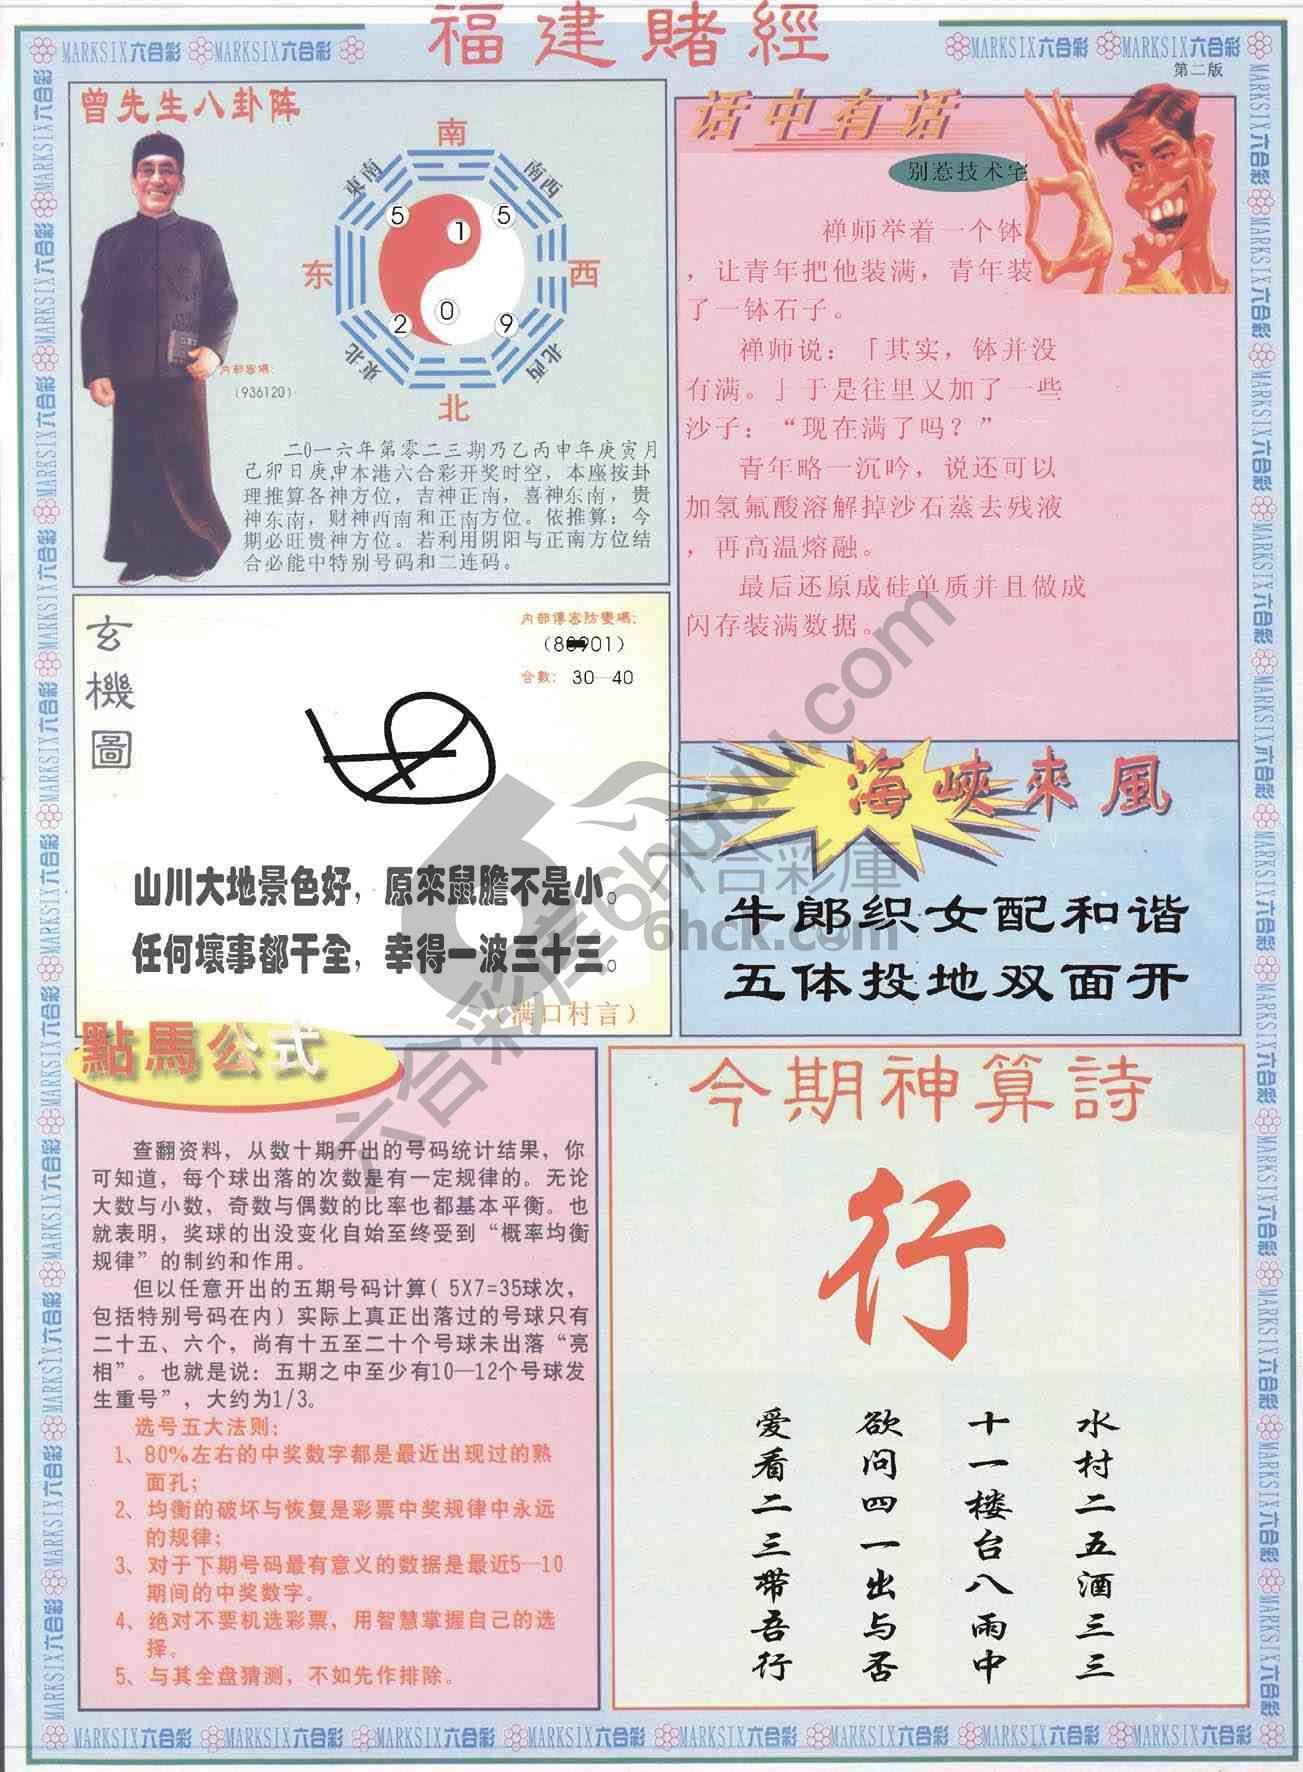 福建賭經
MARKSIX六合彩 MARKSIX六合彩
MARKSIX六合彩 MARKSIX六合彩
第二版
曾先生八卦阵
南
東南
南西
5
1
5
东
西
2
0
9
東北
北西
北
内部密碼:
(936120)
二0一六年第零二三期乃乙丙申年庚寅月
己卯日庚申本港六合彩开奖时空，本座按卦
理推算各神方位，吉神正南，喜神东南，贵
神东南，财神西南和正南方位。依推算：今
期必旺贵神方位。若利用阴阳与正南方位结
合必能中特别号码和二连码。
话中有话
别惹技术宅
禅师举着一个钵
，让青年把他装满，青年装
了一钵石子。
禅师说：「其实，钵并没
有满。」于是往里又加了一些
沙子：“现在满了吗？”
青年略一沉吟，说还可以
加氢氟酸溶解掉沙石蒸去残液
，再高温熔融。
最后还原成硅单质并且做成
闪存装满数据。
玄機圖
内部傳密防變碼:
合數: 30—40
山川大地景色好，原來鼠膽不是小。
任何壞事都干全，幸得一波三十三。
（满口村言）
海峽來風
牛郎织女配和谐
五体投地双面开
六合彩庫
6hck.com
點馬公式
查翻资料，从数十期开出的号码统计结果，你
可知道，每个球出落的次数是有一定规律的。无论
大数与小数，奇数与偶数的比率也都基本平衡。也
就表明，奖球的出没变化自始至终受到“概率均衡
规律”的制约和作用。
但以任意开出的五期号码计算( 5X7=35球次，
包括特别号码在内）实际上真正出落过的号球只有
二十五、六个，尚有十五至二十个号球未出落“亮
相”。也就是说：五期之中至少有10—12个号球发
生重号”，大约为1/3。
选号五大法则:
1、80%左右的中奖数字都是最近出现过的熟
面孔;
2、均衡的破坏与恢复是彩票中奖规律中永远
的规律;
3、对于下期号码最有意义的数据是最近5—10
期间的中奖数字。
4、绝对不要机选彩票，用智慧掌握自己的选
择。
5、与其全盘猜测，不如先作排除。
今期神算詩
行
水村二五酒三三
十一楼台八雨中
欲问四一出与否
爱看二三带吾行
MARKSIX六合彩 MARKSIX六合彩 MARKSIX六合彩 MARKSIX六合彩 MARKSIX六合彩 MARKSIX六合彩 MARKSIX六合彩 MARKSIX六合彩